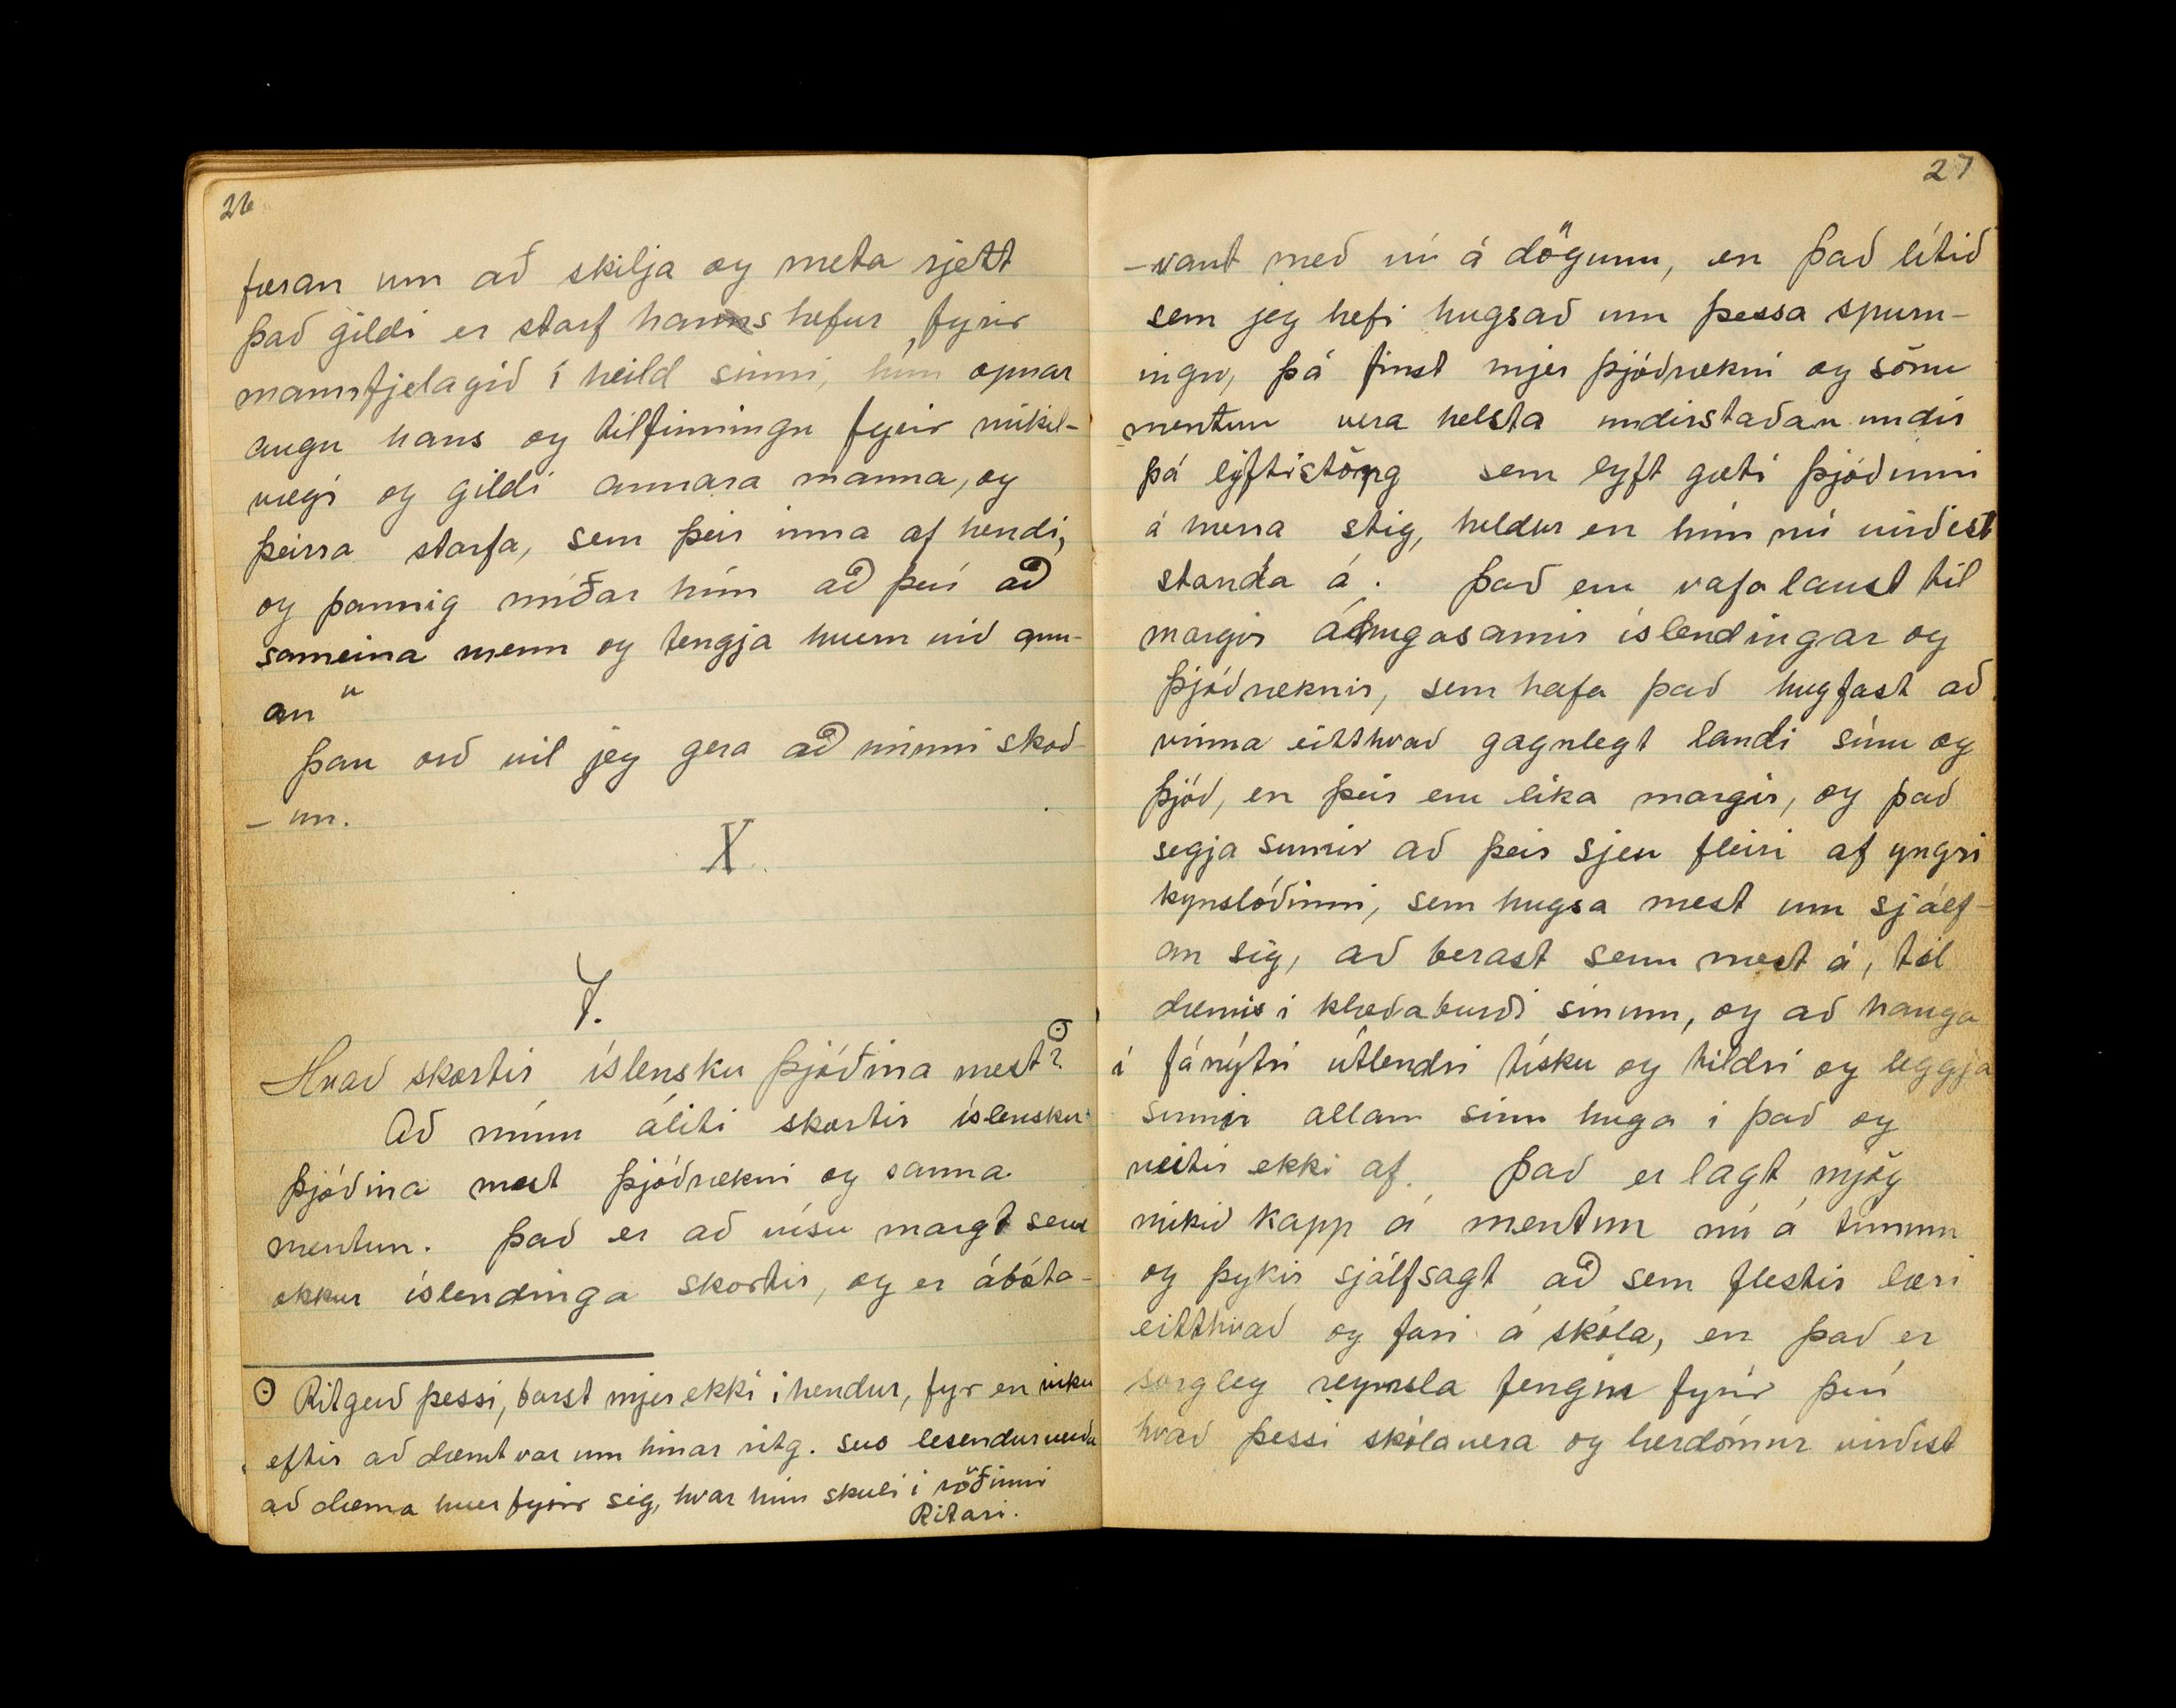 26
færan um að skilja og meta rjett
það gildi er starf hans hefur fyrir
mannfjelagið í heild sinni, hún opnar
augu hans og tilfinningu fyrir mikil-
vægi og gildi annara manna, og
þeirra starfa, sem þeir inna af hendi,
og þannig miðar hún að því að
sameina menn og tengja hvern við ann-
an"
Þau orð vil jeg gera að minni skoð-
-un.
X
7.
Hvað skortir íslensku þjóðina mest? ⊙
Að mínu áliti skortir íslensku
þjóðina mest þjóðrækni og sanna
mentun. Það er að vísu margt sem
okkur íslendinga skortir, og er ábóta-
⊙ Ritgerð þessi, barst mjer ekki í hendur, fyr en viku
eftir að dæmt var um hinar ritg. svo lesendur verða
að dæma hver fyrir sig, hvar hún skuli í röðinni
Ritari.
27
-vant með nú á dögum, en það lítið
sem jeg hefi hugsað um þessa spurn-
ingu, þá finst mjer þjóðrækni og sönn
mentun vera helsta undirstaðan undir
þá lyftistöng sem lyft gæti þjóðinni
á hærra stig, heldur en hún nú virðist
standa á. Það eru vafalaust til
margir áhugasamir íslendingar og
þjóðræknir, sem hafa það hugfast að
vinna eitthvað gagnlegt landi sínu og
þjóð, en þeir eru líka margir, og það
segja sumir að þeir sjeu fleiri af yngri
kynslóðinni, sem hugsa mest um sjálf-
an sig, að berast sem mest á, til
dæmis í klæðaburði sínum, og að hanga
í fánýtri útlendri tísku og tildri og leggja
sumir allan sinn huga í það og
veitir ekki af. Það er lagt mjög
mikið kapp á mentun nú á tímum
og þykir sjálfsagt að sem flestir læri
eitthvað og fari á skóla, en það er
sorgleg reynsla fengin fyrir því
hvað þessi skólavera og lærdómur virðist